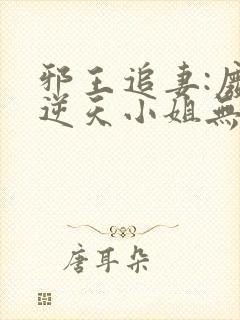 邪王追妻:
逆天小姐無
唐耳朵